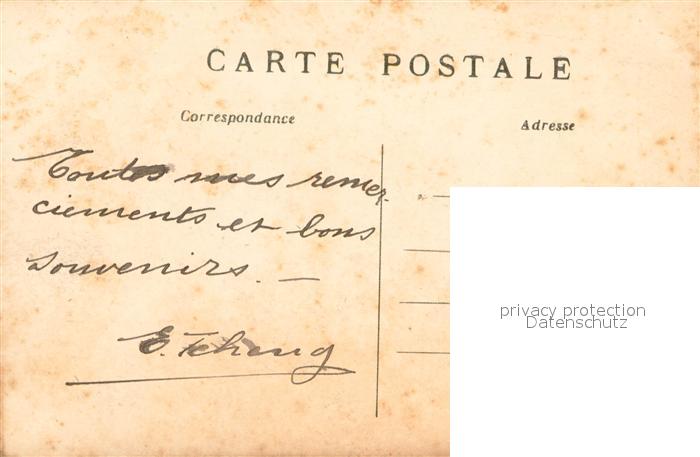 CARTE POSTALE
Correspondance
Adresse
Toutes mes remer-
ciements et bons
souvenirs. —
E. Tcheng
privacy protection
Datenschutz